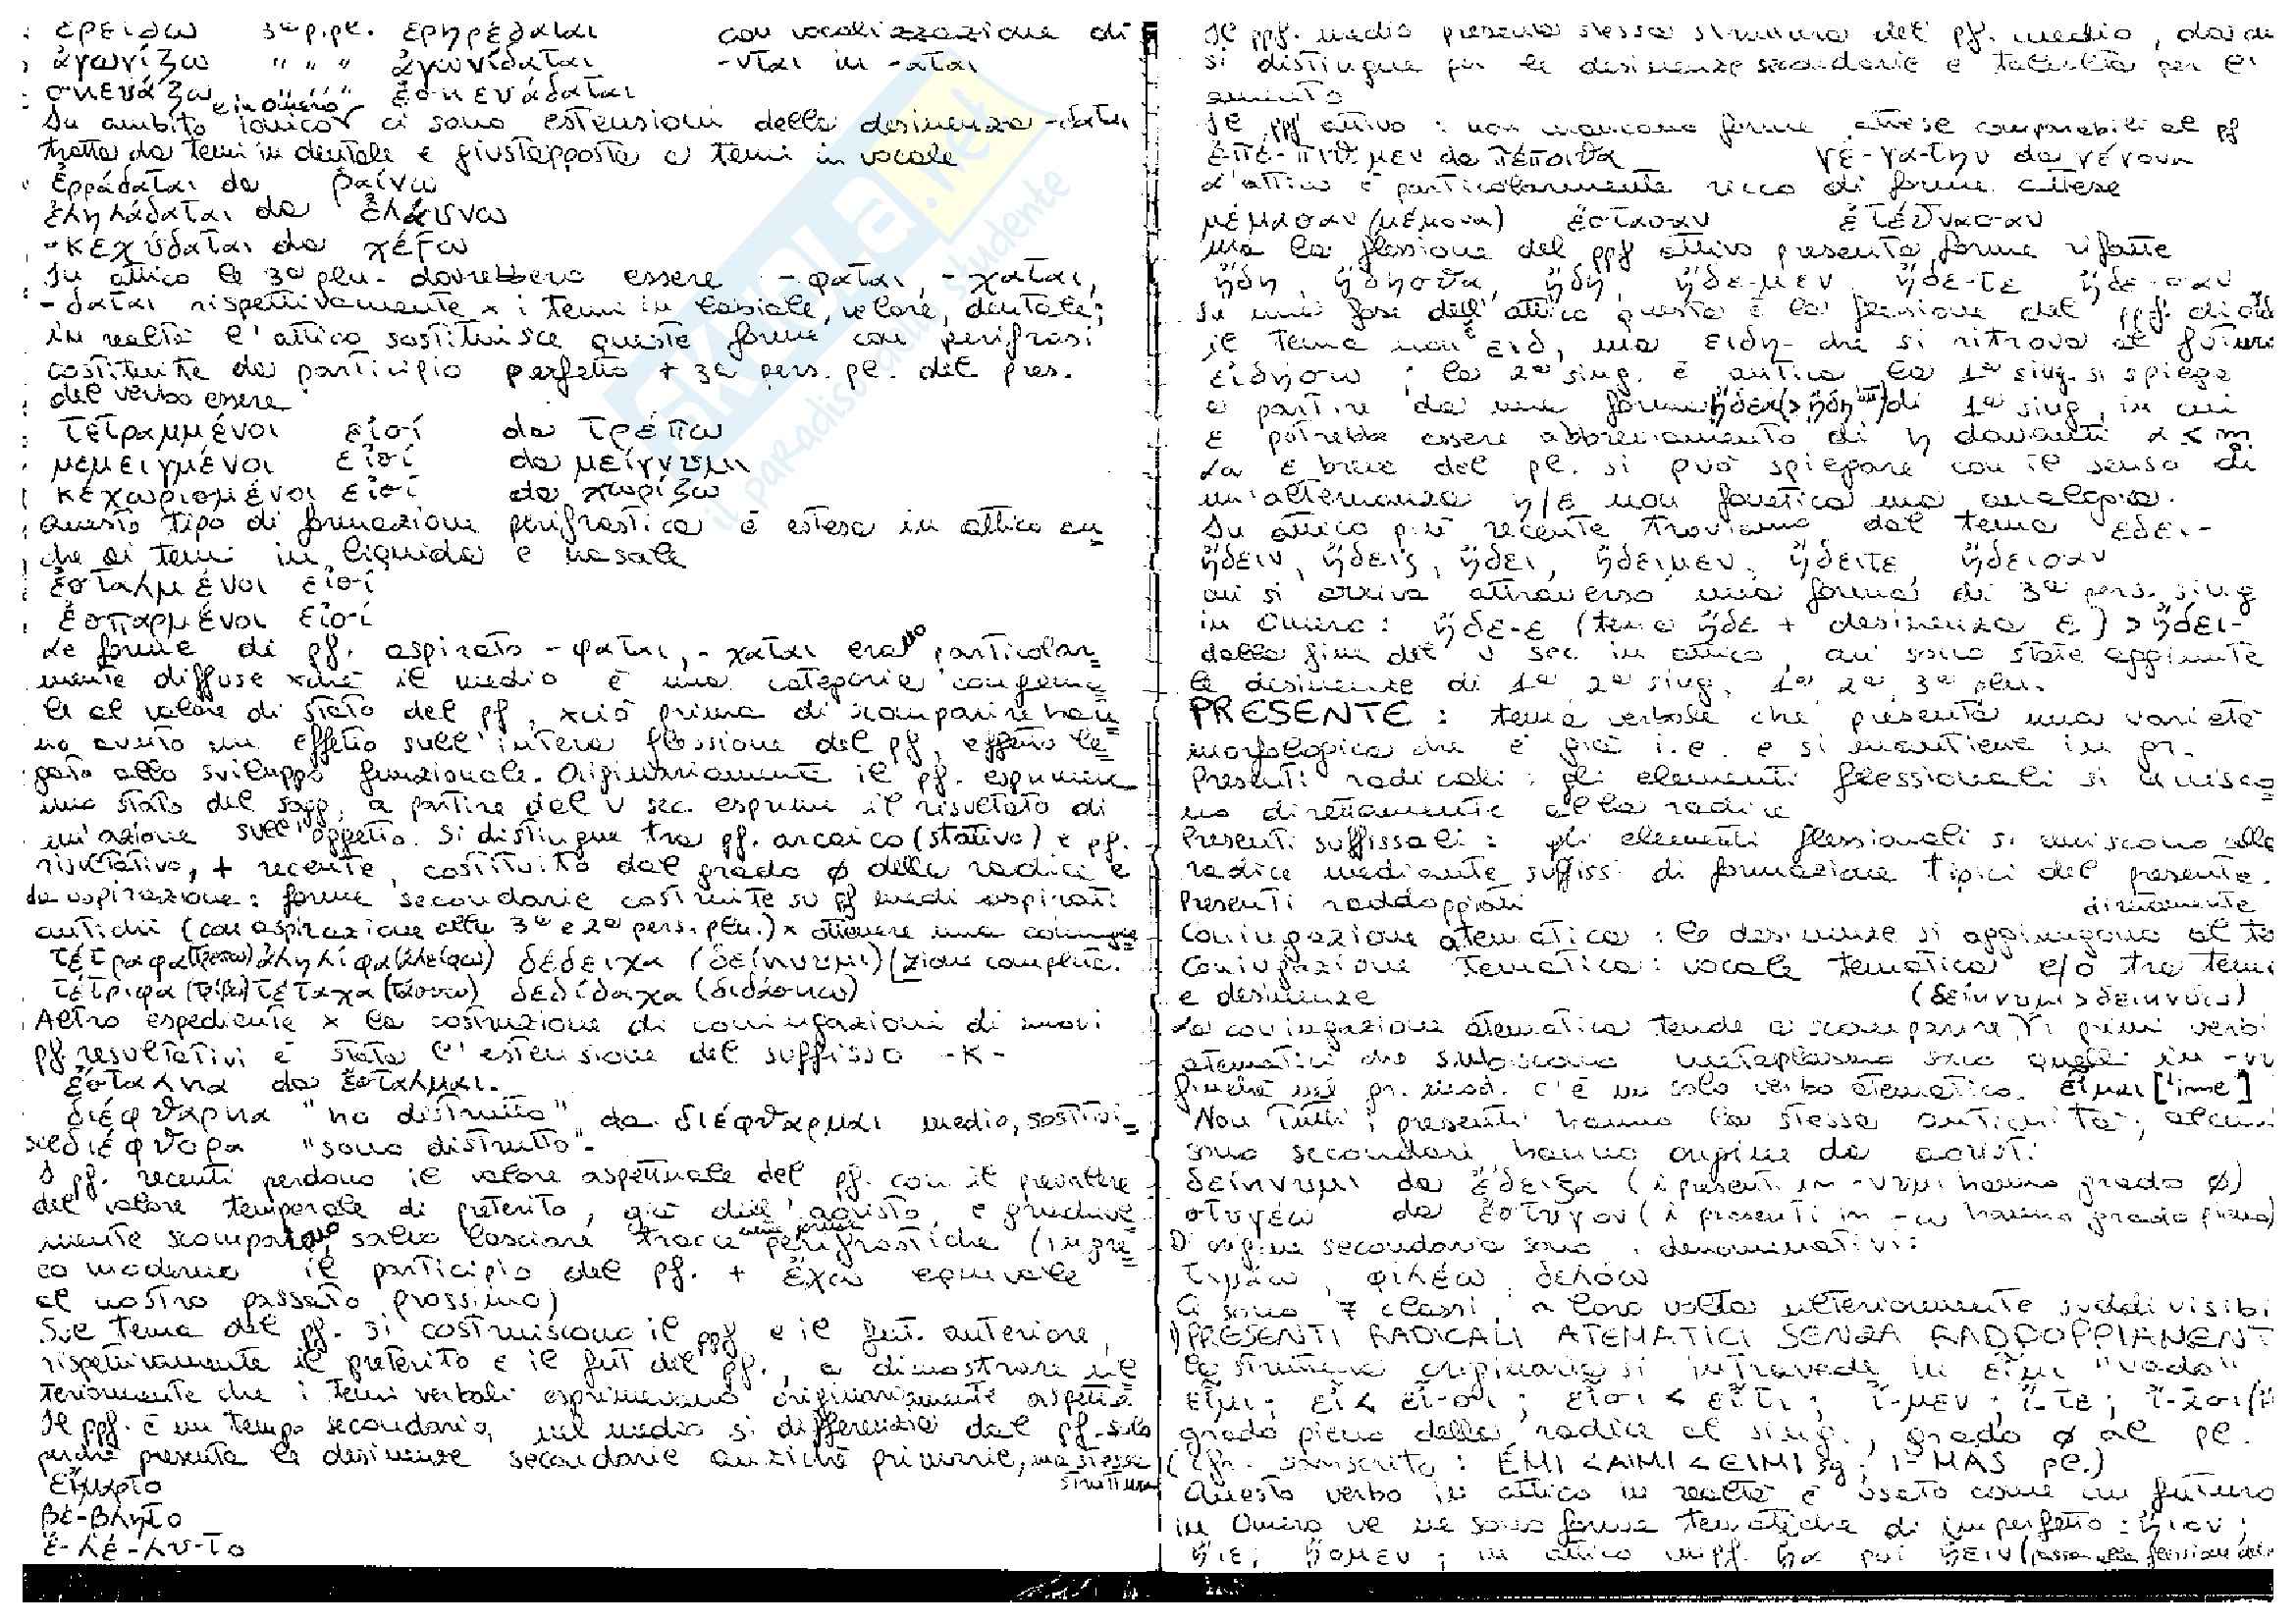 ἐρείδω 3ª p.pl. ἐρηρέδαται con vocalizzazione di
ἀγωνίζω " " " ἀγωνίδαται -νται in -αται
σκευάζω " " " ἐσκευάδαται
In ambito ionico e in Omero ci sono estensioni della desinenza -δαται
tratta da temi in dentale e giustapposta a temi in vocale
ἐρράδαται da ῥαίνω
ἐληλάδαται da ἐλαύνω
-κεχύδαται da χέϝω
In attico le 3ª plu. dovrebbero essere -φαται, -χαται,
-δαται rispettivamente x i temi in labiale, velare, dentale;
in realtà l'attico sostituisce queste forme con perifrasi
costituite da participio perfetto + 3ª pers. pl. del pres.
del verbo essere
τετραμμένοι εἰσί da τρέπω
μεμειγμένοι εἰσί da μείγνυμι
κεχωρισμένοι εἰσί da χωρίζω
Questo tipo di formazione perifrastica è estesa in attico an=
che ai temi in liquida e nasale
ἐσταλμένοι εἰσί
ἐσπαρμένοι εἰσί
Le forme di pf. aspirato -φαται, -χαται erano particolar=
mente diffuse xchè il medio è una categoria confeme=
le al valore di stato del pf, xciò prima di scomparire han=
no avuto un effetto sull'intera flessione del pf, effetto le=
gato allo sviluppo funzionale. Originariamente il pf. esprimeva
uno stato del sogg, a partire dal V sec. esprime il risultato di
un'azione sull'oggetto. Si distingue tra pf. arcaico (stativo) e pf.
risultativo, + recente, costituito dal grado ø della radice e
da aspirazione: forme secondarie costruite su pf medi aspirati
antichi (con aspirazione alla 3ª e 2ª pers. plu.) x ottenere una coniuga=
τέτραφα (τρέπω) ἀλήλιφα (ἀλείφω) δέδειχα (δείκνυμι) [zione completa.
τέτριφα (τρίβω) τέταχα (τάσσω) δεδίδαχα (διδάσκω)
Altro espediente x la costruzione di coniugazioni di nuovi
pf. resultativi è stata l'estensione del suffisso -κ-
ἔσταλκα da ἔσταλμαι.
διέφθαρκα "ho distrutto" da διέφθαρμαι medio, sostitui=
sce διέφθορα "sono distrutto".
I pf. recenti perdono il valore aspettuale del pf. con il prevalere
del valore temporale di preterito, già dell'aoristo, e gradual=
mente scompaiono, salvo lasciare tracce in forme perifrastiche (in gre=
co moderno il participio del pf. + ἔχω equivale
al nostro passato prossimo)
Sul tema del pf. si costruiscono il ppf e il fut. anteriore,
rispettivamente il preterito e il fut del pf., a dimostrare ul=
teriormente che i temi verbali esprimevano originariamente aspetto
Il ppf. è un tempo secondario, nel medio si differenzia dal pf. solo
perchè presenta le desinenze secondarie anzichè primarie, ma stessa
struttura
εἵμαρτο
βέ-βλητο
ἐ-λέ-λυ-το
Il ppf. medio presenta stessa struttura del pf. medio, da cui
si distingue per le desinenze secondarie e talvolta per l'
aumento
Il ppf attivo: non mancano forme attese comparabili al pf
ἐπέ-πιθμεν da πέποιθα γε-γά-την da γέγονα
L'attico è particolarmente ricco di forme attese
μέμασαν (μέμονα) ἕστασαν ἐτέθνασαν
ma la flessione del ppf attivo presenta forme rifatte
ᾔδη, ᾔδησθα, ᾔδη, ᾔδε-μεν, ᾔδε-τε ᾔδε-σαν
In una fase dell'attico questa è la flessione del ppf. di οἶδα
il tema non è ειδ, ma ειδη- che si ritrova al futuro
εἰδήσω; la 2ª sing. è antica la 1ª sing. si spiega
a partire da una forma ᾔδεα (>ᾔδη) di 1ª sing, in cui
ε potrebbe essere abbreviamento di η davanti α < m̥
La ε breve del pl. si può spiegare con il senso di
un'alternanza η/ε non fonetica ma analogica.
In attico più recente troviamo dal tema εδει-
ᾔδειν, ᾔδεις, ᾔδει, ᾔδειμεν, ᾔδειτε ᾔδεισαν
cui si arriva attraverso una forma di 3ª pers. sing
in Omero: ᾔδε-ε (tema ᾔδε + desinenza ε) > ᾔδει-
dalla fine del V sec. in attico, cui sono state aggiunte
le desinenze di 1ª 2ª sing, 1ª 2ª 3ª plu.
PRESENTE: tema verbale che presenta una varietà
morfologica che è già i.e. e si mantiene in gr.
Presenti radicali: gli elementi flessionali si unisco=
no direttamente alla radice
Presenti suffissali: gli elementi flessionali si uniscono alla
radice mediante suffissi di formazione tipici del presente.
Presenti raddoppiati
direttamente
Coniugazione atematica: le desinenze si aggiungono al te
Coniugazione tematica: vocale tematica e/o tra tema
e desinenze (δείκνυμι > δεικνύω)
La coniugazione atematica tende a scomparire, i primi verbi
atematici che subiscono metaplasmo sono quelli in -νυ
finchè nel gr. mod. c'è un solo verbo atematico. εἶμαι ['ime]
Non tutti i presenti hanno la stessa antichità; alcuni
sono secondari hanno origine da aoristi
δείκνυμι da ἔδειξα (i presenti in -νυμι hanno grado ø)
στυγέω da ἔστυγον (i presenti in -ω hanno grado pieno)
Di origine secondaria sono i denominativi:
τιμάω, φιλέω, δηλόω
Ci sono 7 classi, a loro volta ulteriormente suddivisibi
1) PRESENTI RADICALI ATEMATICI SENZA RADDOPPIAMENT
la struttura originaria si intravede in εἶμι "vado"
εἶμι; εἶ < εἶ-σι; εἶσι < εἶτι; ἴ-μεν; ἴ-τε; ἴ-ᾱσι
grado pieno della radice al sing., grado ø al pl.
(cfr. sanscrito: ÉMI < AIMI < EIMI sg; I-MAS pl.)
Questo verbo in attico in realtà è usato come un futuro
in Omero ve ne sono forme tematiche di imperfetto: ἤιον;
ἤιε; ᾔομεν; in attico impf. ᾖα poi ᾔειν (passa alla flessione del